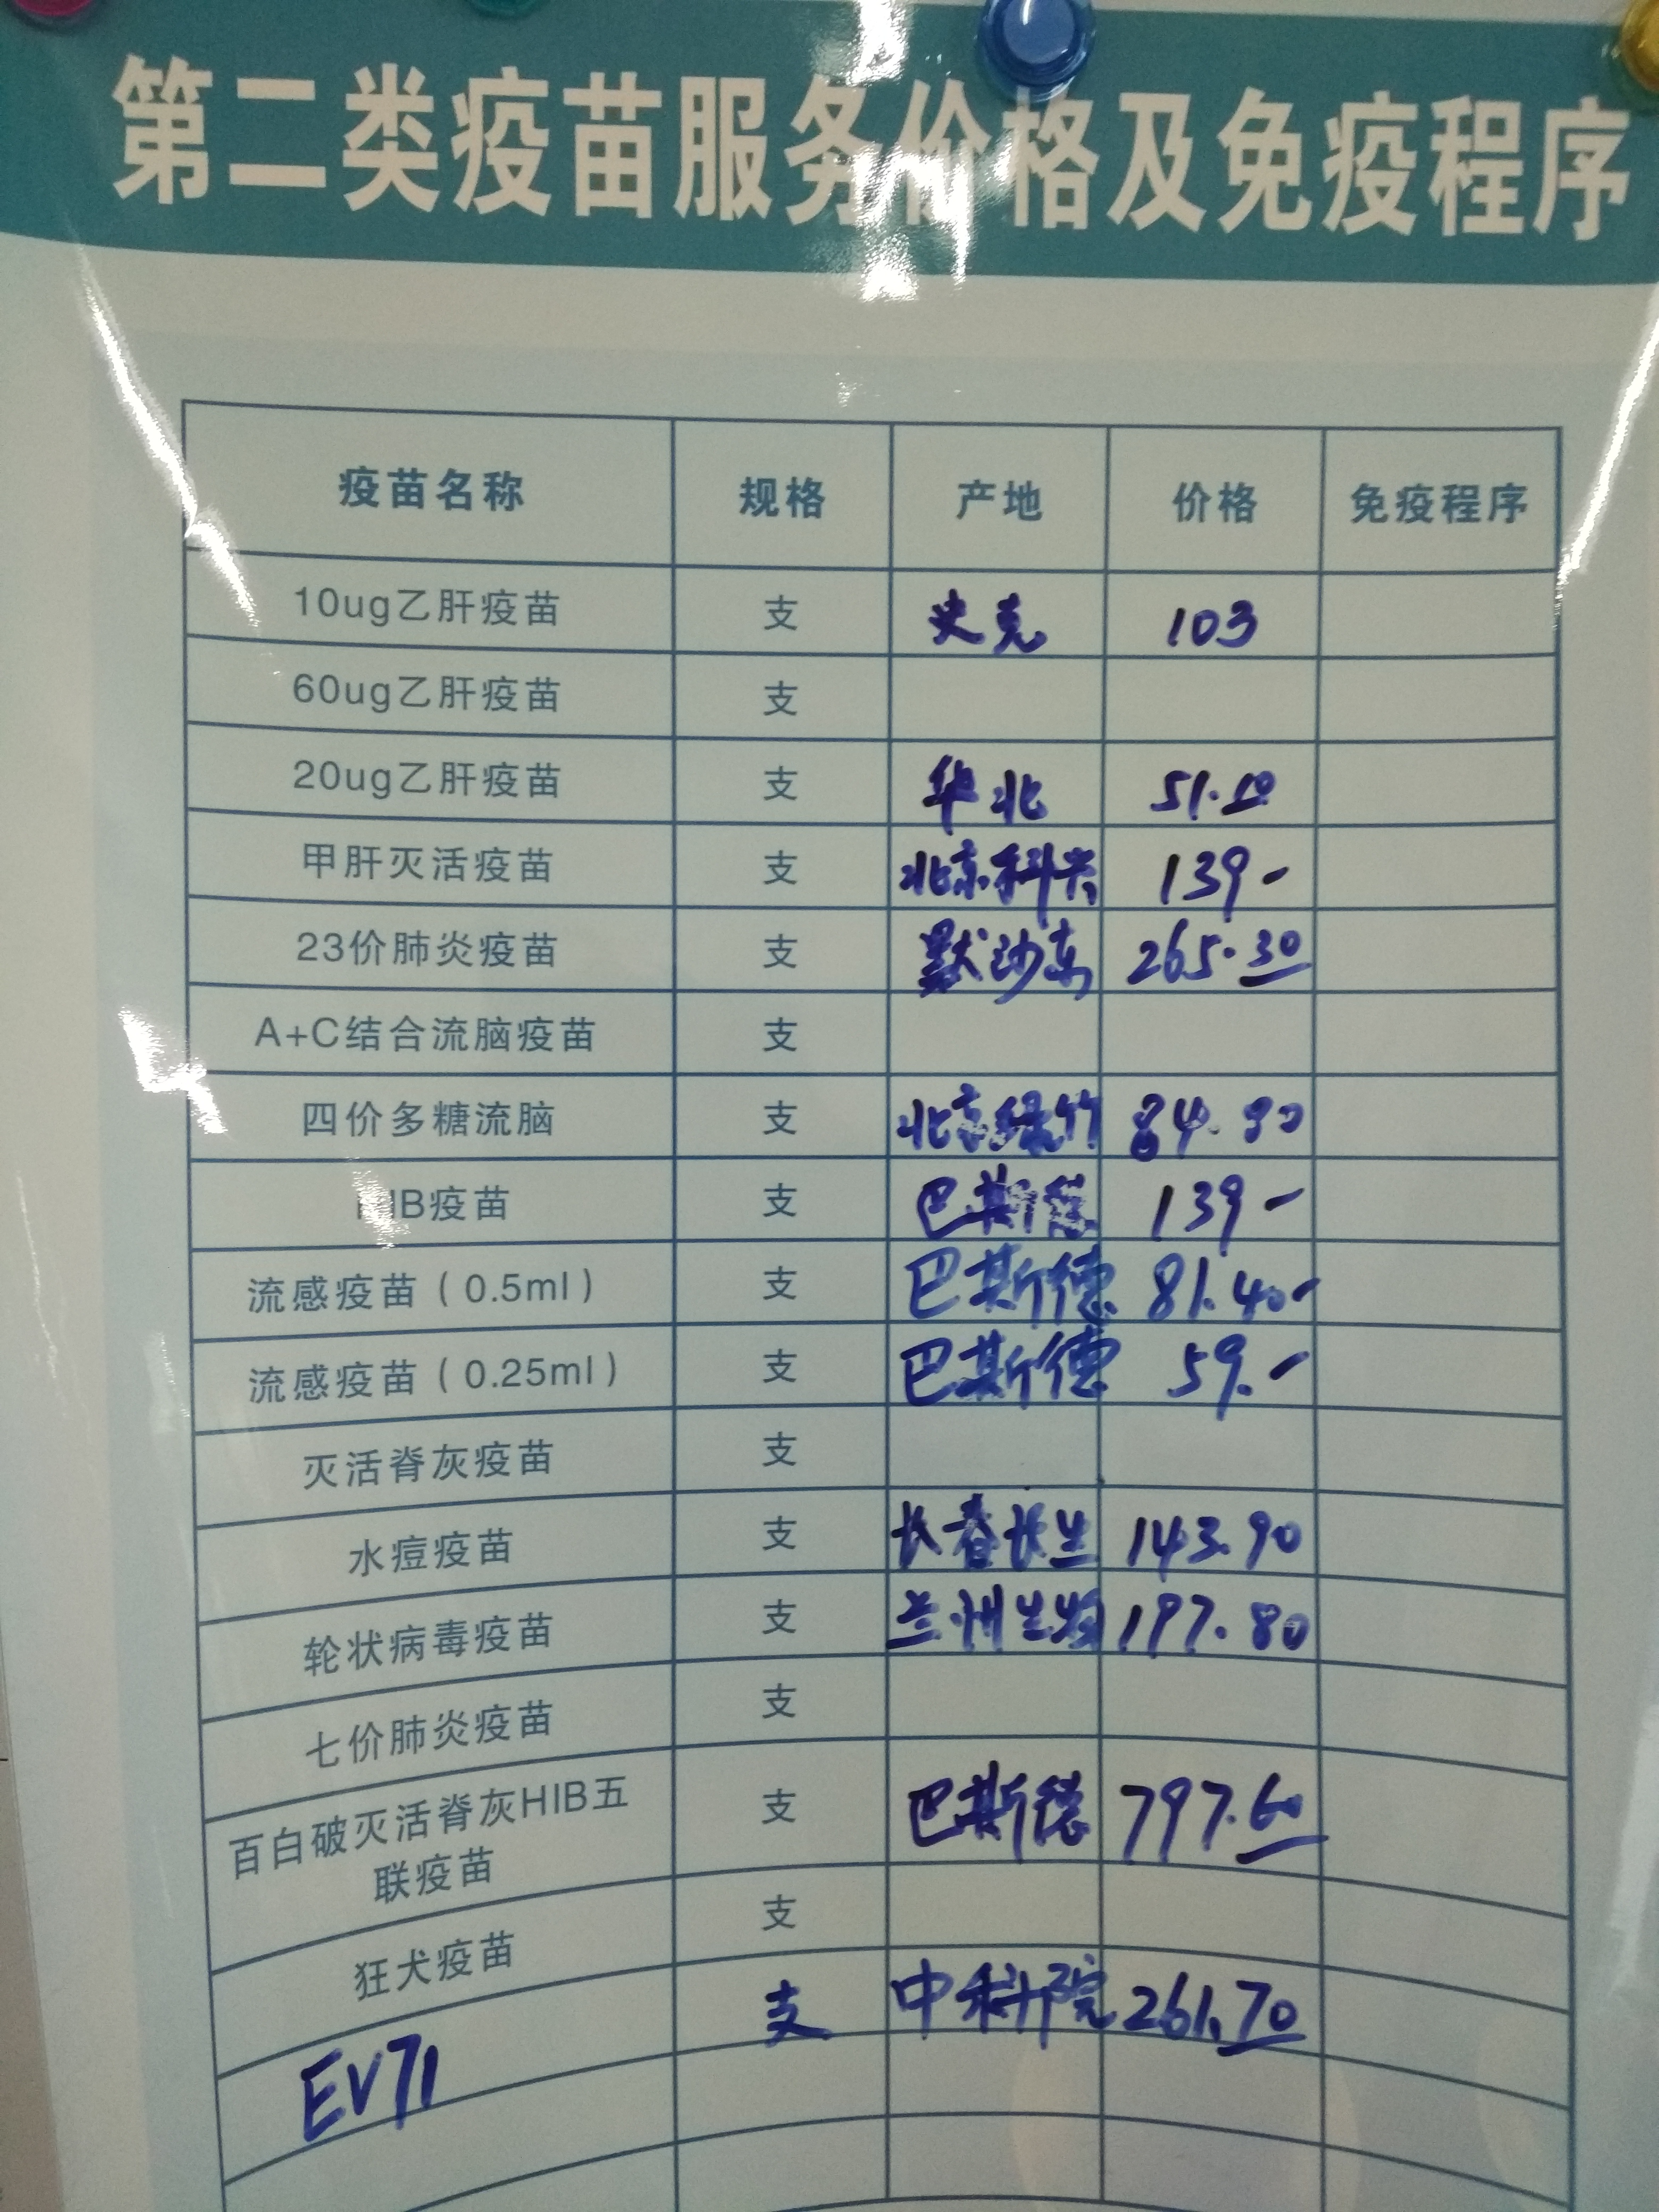 第二类疫苗服务价格及免疫程序
疫苗名称 规格 产地 价格 免疫程序
10ug乙肝疫苗 支 史克 103
60ug乙肝疫苗 支
20ug乙肝疫苗 支 华北 51.10
甲肝灭活疫苗 支 北京科兴 139-
23价肺炎疫苗 支 默沙东 265.30
A+C结合流脑疫苗 支
四价多糖流脑 支 北京绿竹 84.90
HIB疫苗 支 巴斯德 139-
流感疫苗(0.5ml) 支 巴斯德 81.40-
流感疫苗(0.25ml) 支 巴斯德 59.-
灭活脊灰疫苗 支
水痘疫苗 支 长春长生 143.90
轮状病毒疫苗 支 兰州生物 197.80
七价肺炎疫苗 支
百白破灭活脊灰HIB五 支 巴斯德 797.60
联疫苗
狂犬疫苗 支
EV71 支 中科院 261.70